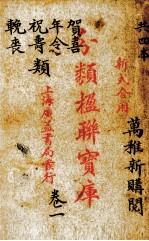 共四本
萬雅新購閱
新式合用
分類楹聯寶庫
上海廣益書局發行
卷一
賀喜
年令
祝壽類
輓喪